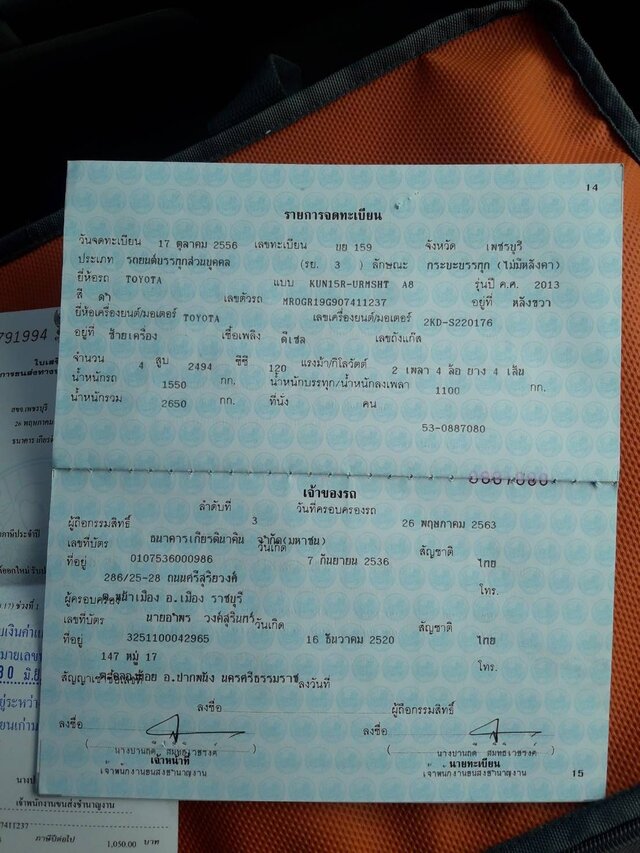 14
รายการจดทะเบียน
วันจดทะเบียน 17 ตุลาคม 2556 เลขทะเบียน บย 159 จังหวัด เพชรบุรี
ประเภท รถยนต์บรรทุกส่วนบุคคล (รย. 3 ) ลักษณะ กระบะบรรทุก (ไม่มีหลังคา)
ยี่ห้อรถ TOYOTA แบบ KUN15R-URMSHT A8 รุ่นปี ค.ศ. 2013
สี ดำ เลขตัวรถ MR0GR19G907411237 อยู่ที่ หลังขวา
ยี่ห้อเครื่องยนต์/มอเตอร์ TOYOTA เลขเครื่องยนต์/มอเตอร์ 2KD-S220176
อยู่ที่ ซ้ายเครื่อง เชื้อเพลิง ดีเซล เลขถังแก๊ส
จำนวน 4 สูบ 2494 ซีซี 120 แรงม้า/กิโลวัตต์ 2 เพลา 4 ล้อ ยาง 4 เส้น
น้ำหนักรถ 1550 กก. น้ำหนักบรรทุก/น้ำหนักลงเพลา 1100 กก.
น้ำหนักรวม 2650 กก. ที่นั่ง คน
53-0887080
0887080
เจ้าของรถ
ลำดับที่ 3 วันที่ครอบครองรถ 26 พฤษภาคม 2563
ผู้ถือกรรมสิทธิ์ ธนาคารเกียรตินาคิน จำกัด(มหาชน)
เลขที่บัตร 0107536000986 วันเกิด 7 กันยายน 2536 สัญชาติ ไทย
ที่อยู่ 286/25-28 ถนนศรีสุริยวงศ์ โทร.
ต.หน้าเมือง อ.เมือง ราชบุรี
ผู้ครอบครอง นายอำพร วงค์สุรินทร์
เลขที่บัตร 3251100042965 วันเกิด 16 ธันวาคม 2520 สัญชาติ ไทย
ที่อยู่ 147 หมู่ 17 โทร.
ต.คลองน้อย อ.ปากพนัง นครศรีธรรมราช
สัญญาเช่าซื้อเลขที่ ลงวันที่
ลงชื่อ ผู้ถือกรรมสิทธิ์
ลงชื่อ ลงชื่อ
เจ้าหน้าที่ นายทะเบียน
เจ้าพนักงานขนส่งชำนาญงาน เจ้าพนักงานขนส่งชำนาญงาน
15
791994
สขจ.เพชรบุรี
26 พฤษภาคม
ธนาคารเกียรตินาคิน
เจ้าพนักงานขนส่งชำนาญงาน
7411237
ภาษีปีต่อไป 1,050.00 บาท